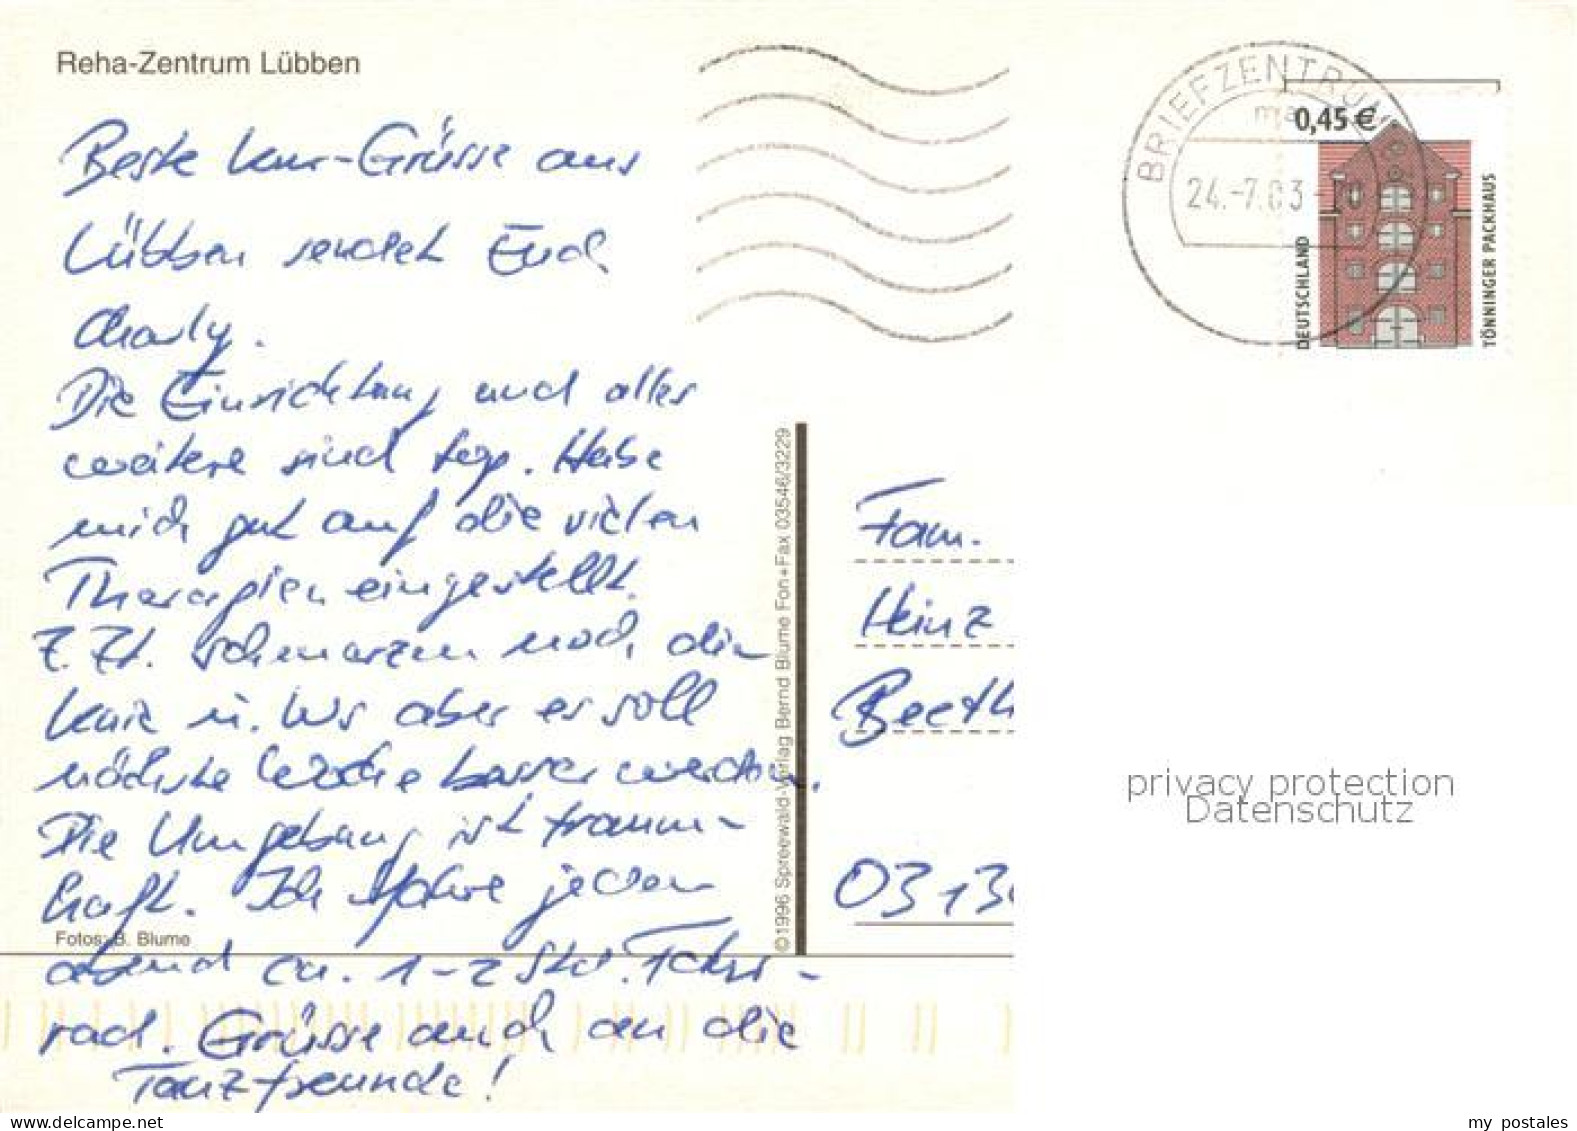 Reha-Zentrum Lübben
Beste Kur-Grüsse aus
Lübben sendet Euch
Charly.
Die Einrichtung und alles
weitere sind top. Habe
mich gut auf die vielen
Therapien eingestellt.
Z. Zt. schmerzen noch die
Knie u. Ws aber es soll
nächste Woche besser werden.
Die Umgebung ist traum-
haft. Ich fahre jeden
Abend ca. 1-2 Std. Fahr-
rad. Grüsse auch an die
Tanzfreunde!
Fotos: B. Blume
©1996 Spreewald-Verlag Bernd Blume Fon+Fax 03546/3229
BRIEFZENTRUM
24.-7.03
0,45 €
DEUTSCHLAND
TÖNNINGER PACKHAUS
Fam.
Heinz
Beeth
0313
privacy protection
Datenschutz
www.delcampe.net
my_postales